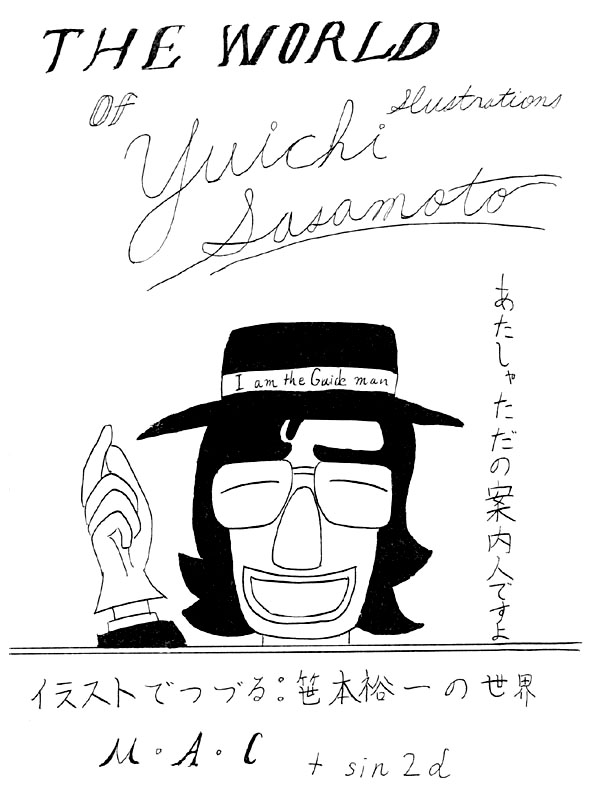 THE WORLD
Of
Illustrations
Yuichi
Sasamoto
あたしゃただの案内人ですよ
I am the Guide man
イラストでつづる:笹本裕一の世界
M・A・C
+ sin2d